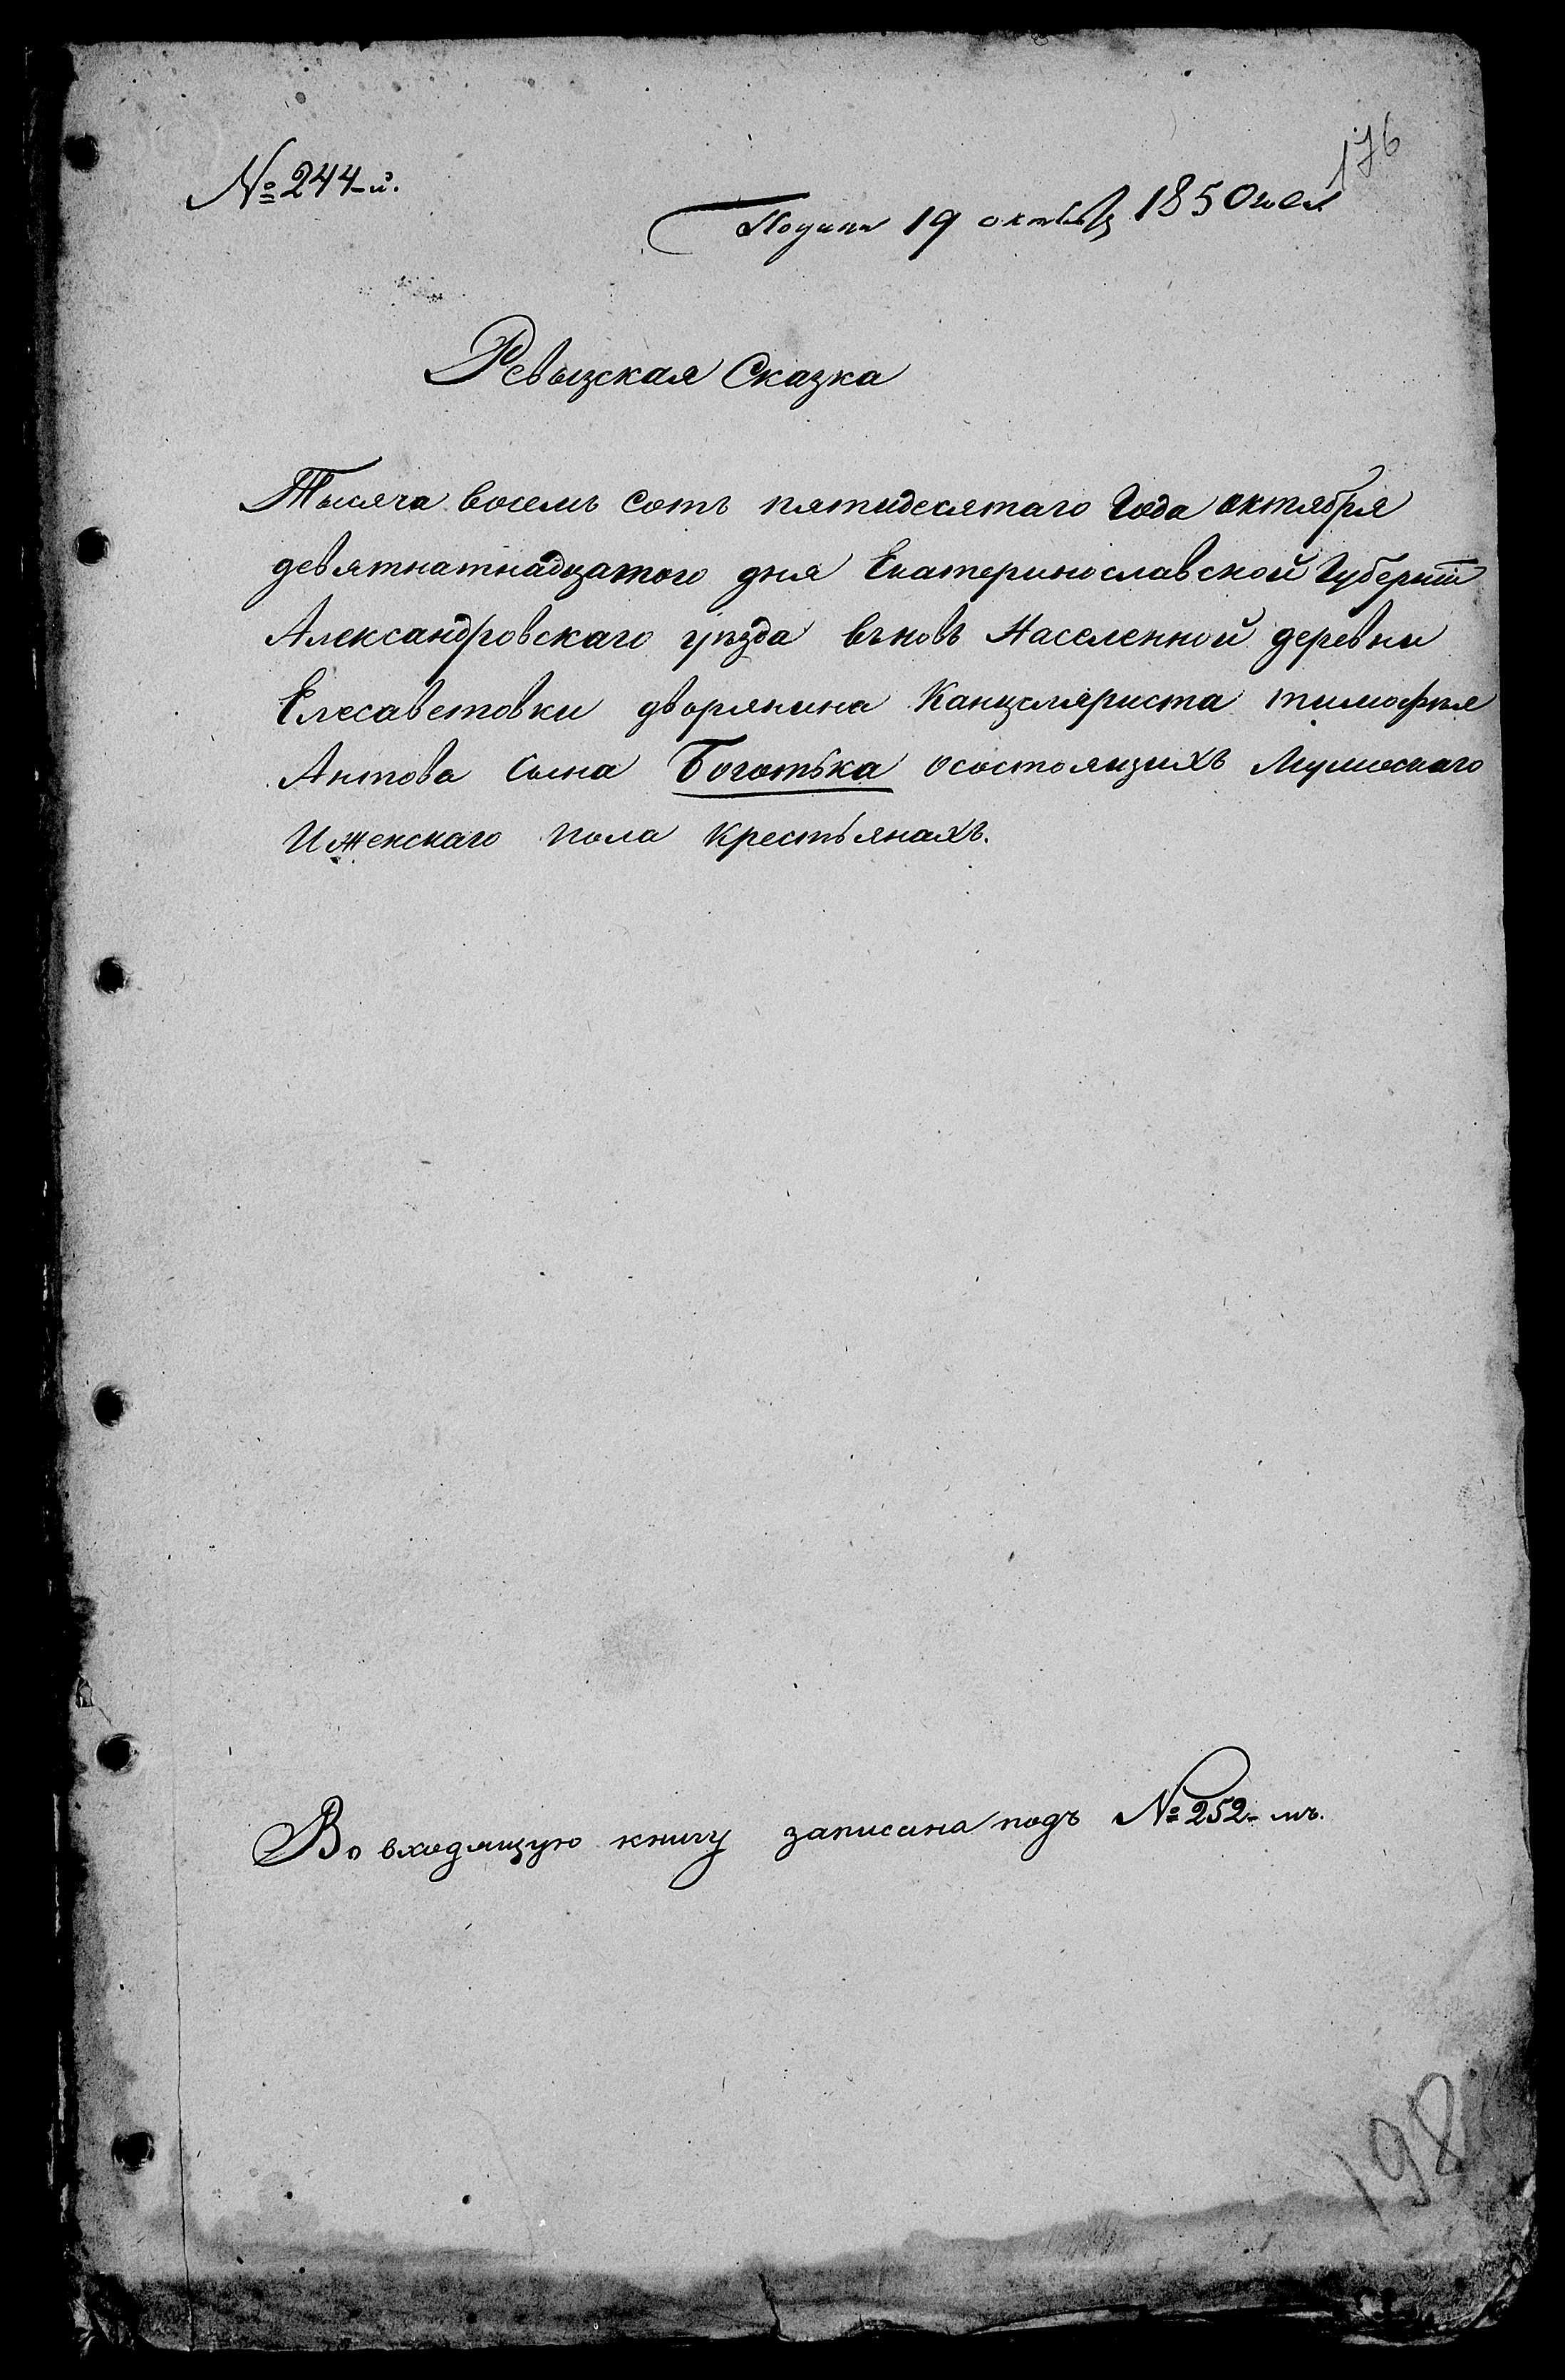 176
№ 244-й.
Подана 19 октября 1850 года
Ревызская Сказка
Тысяча восемь сотъ пятидесятаго Года октября
девятнатнадцатого дня Екатеринославской Губерніи
Александровскаго уѣзда вьновь Населенной деревни
Елесаветовки дворянина Канцеляриста тимофѣя
Антова Сына Боготька осостоящихъ Мужескаго
Иженскаго пола крестьянахъ.
Во входящую книгу записана подъ № 252-мъ.
198